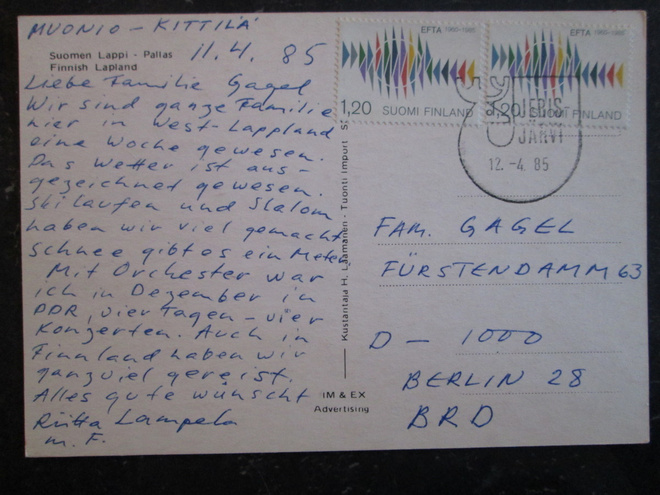 MUONIO - KITTILÄ
11.4. 85
Suomen Lappi - Pallas
Finnish Lapland
Liebe Familie Gagel
Wir sind ganze Familie
hier in West-Lappland
eine Woche gewesen.
Das Wetter ist aus-
gezeichnet gewesen.
Skilaufen und Slalom
haben wir viel gemacht
Schnee gibt es ein Meter.
Mit Orchester war
ich in Dezember in
DDR, vier Tagen - vier
Konzerten. Auch in
Finnland haben wir
ganz viel gereist.
Alles gute wünscht
Riitta Lampela
m. F.
Kustantaja H. Laamanen - Tuonti Import
IM & EX
Advertising
EFTA 1960-1985
1,20 SUOMI FINLAND
EFTA 1960-1985
1,20 SUOMI FINLAND
JERIS
JÄRVI
12.-4. 85
FAM. GAGEL
FÜRSTENDAMM 63
D - 1000
BERLIN 28
BRD